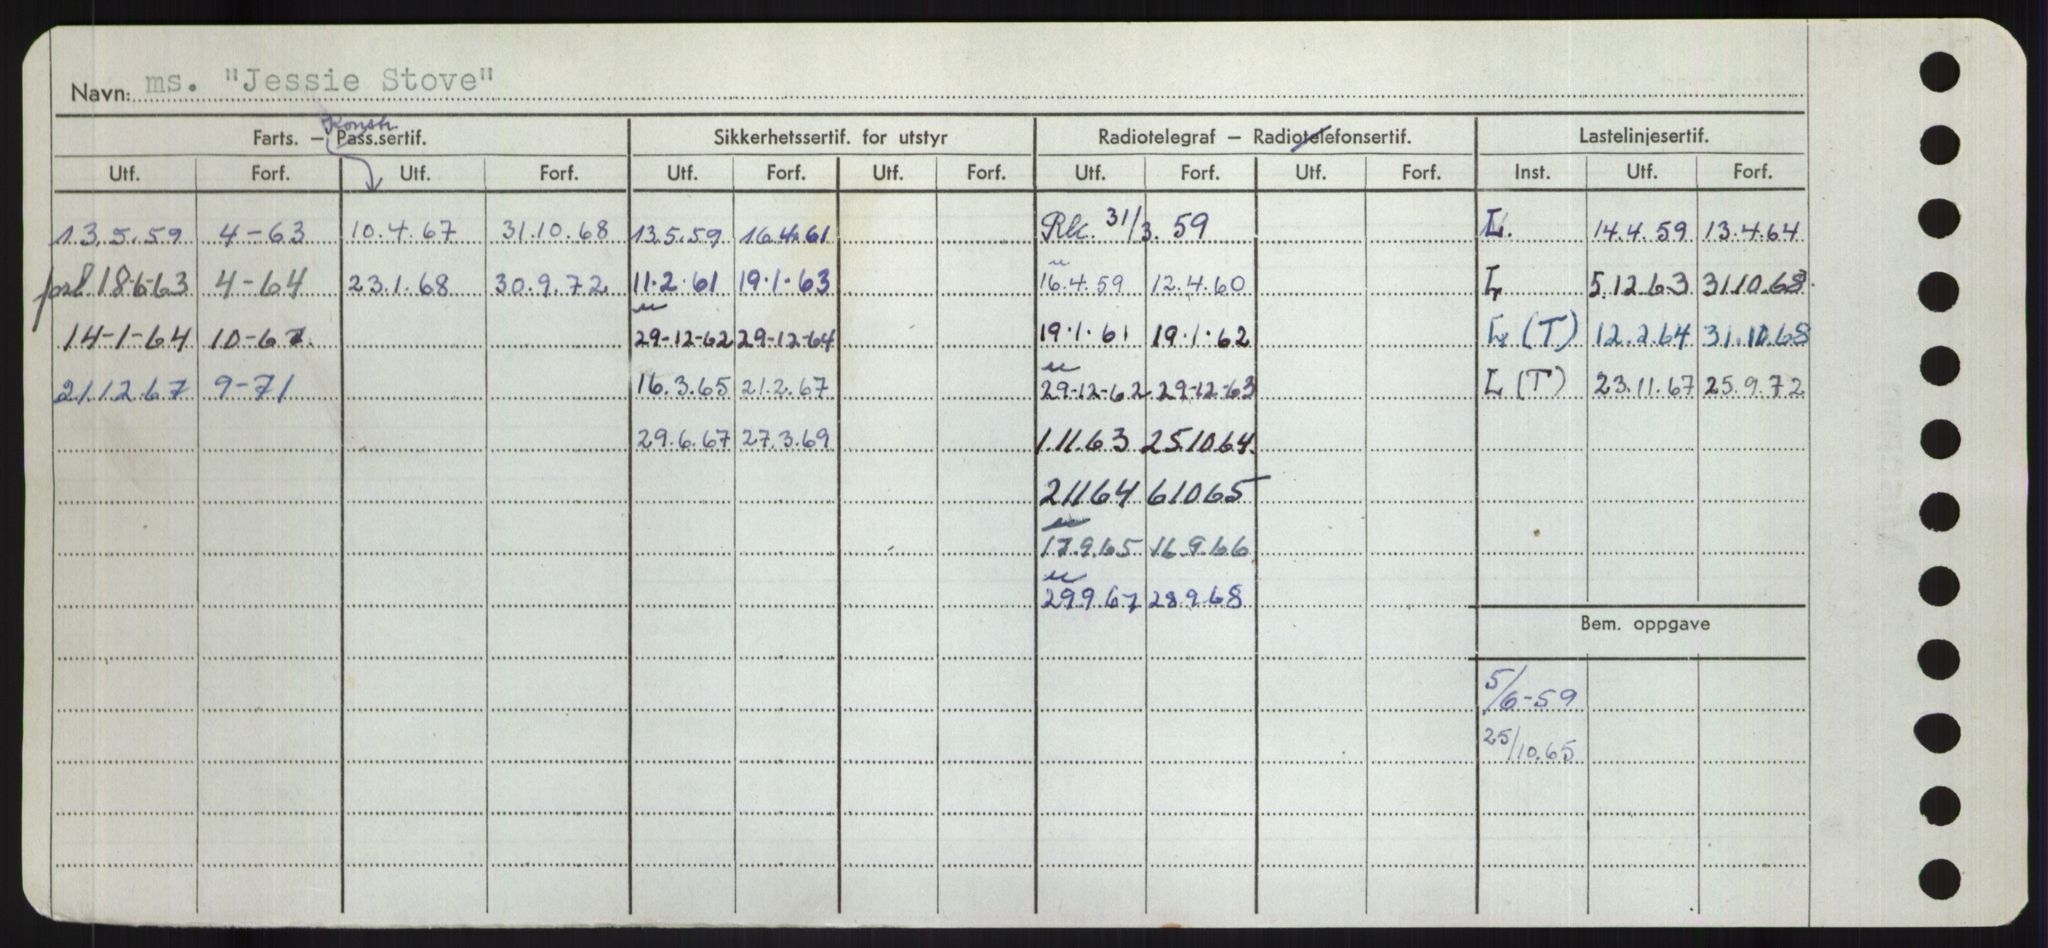 Navn: ms. "Jessie Stove"
Konstr
Farts. — Pass.sertif. Sikkerhetssertif. for utstyr Radiotelegraf — Radiotelefonsertif. Lastelinjesertif.
Utf. Forf. Utf. Forf. Utf. Forf. Utf. Forf. Utf. Forf. Utf. Forf. Inst. Utf. Forf.
13.5.59 4-63 10.4.67 31.10.68 13.5.59 16.4.61 31/3.59 L. 14.4.59 13.4.64
forl 18-6-63 4-64 23.1.68 30.9.72 11.2.61 19.1.63 16.4.59 12.4.60 L 5.12.63 31.10.68
14-1-64 10-67. 29-12-62 29-12-64 19.1.61 19.1.62 L (T) 12.2.64 31.10.68
21.12.67 9-71 16.3.65 21.2.67 29-12-62 29-12-63 L (T) 23.11.67 25.9.72
29.6.67 27.3.69 1.11.63 25.10.64.
21164 61065
17.9.65 16.9.66
299.67 28.9.68
Bem. oppgave
5/6-59
25/10.65